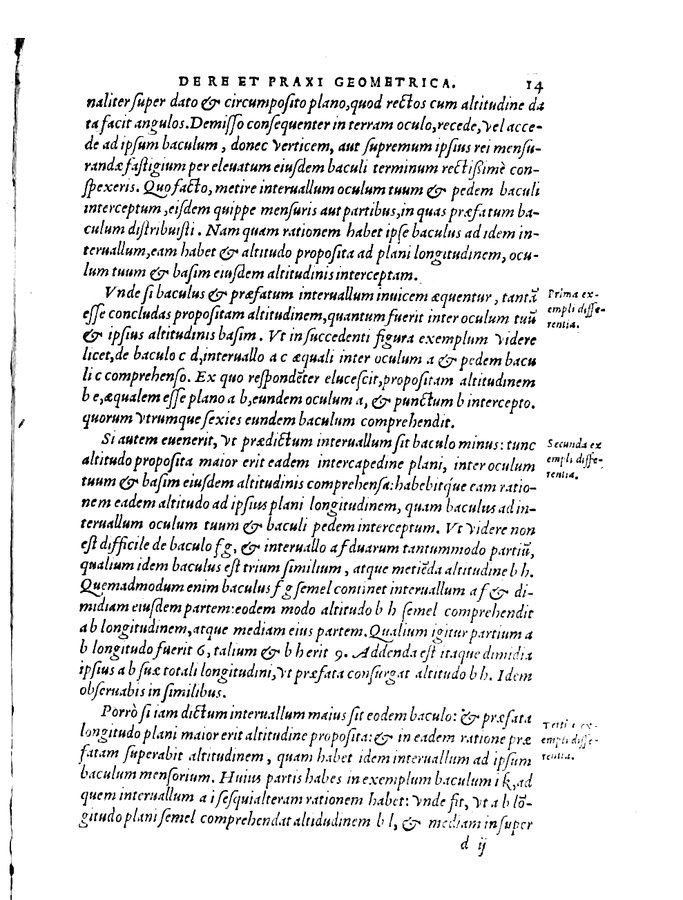 DE RE ET PRAXI GEOMETRICA. 14
naliter ſuper dato & circumpoſito plano, quod rectos cum altitudine da
ta facit angulos. Demiſſo conſequenter in terram oculo, recede, vel acce-
de ad ipſum baculum, donec verticem, aut ſupremum ipſius rei menſu-
randæ faſtigium per eleuatum eiuſdem baculi terminum rectiſsimè con-
ſpexeris. Quo facto, metire interuallum oculum tuum & pedem baculi
interceptum, eiſdem quippe menſuris aut partibus, in quas præfatum ba-
culum diſtribuiſti. Nam quam rationem habet ipſe baculus ad idem in-
teruallum, eam habet & altitudo propoſita ad plani longitudinem, ocu-
lum tuum & baſim eiuſdem altitudinis interceptam.
Vnde ſi baculus & præfatum interuallum inuicem æquentur, tantā
eſſe concludas propoſitam altitudinem, quantum fuerit inter oculum tuū
& ipſius altitudinis baſim. Vt in ſuccedenti figura exemplum videre
licet, de baculo c d, interuallo a c æquali inter oculum a & pedem bacu
li c comprehenſo. Ex quo reſpondēter eluceſcit, propoſitam altitudinem
b e, æqualem eſſe plano a b, eundem oculum a, & punctum b intercepto.
quorum vtrumque ſexies eundem baculum comprehendit.
Prima ex-
empli diffe-
rentia.
Si autem euenerit, vt prædictum interuallum ſit baculo minus: tunc
altitudo propoſita maior erit eadem intercapedine plani, inter oculum
tuum & baſim eiuſdem altitudinis comprehenſa: habebitq́ue eam ratio-
nem eadem altitudo ad ipſius plani longitudinem, quam baculus ad in-
teruallum oculum tuum & baculi pedem interceptum. Vt videre non
eſt difficile de baculo f g, & interuallo a f duarum tantummodo partiū,
qualium idem baculus eſt trium ſimilium, atque metiēda altitudine b h.
Quemadmodum enim baculus f g ſemel continet interuallum a f & di-
midiam eiuſdem partem: eodem modo altitudo b h ſemel comprehendit
a b longitudinem, atque mediam eius partem. Qualium igitur partium a
b longitudo fuerit 6, talium & b h erit 9. Addenda eſt itaque dimidia
ipſius a b ſuæ totali longitudini, vt præfata conſurgat altitudo b h. Idem
obſeruabis in ſimilibus.
Secunda ex
empli diffe-
rentia.
Porrò ſi iam dictum interuallum maius ſit eodem baculo: & præfata
longitudo plani maior erit altitudine propoſita: & in eadem ratione præ
fatam ſuperabit altitudinem, quam habet idem interuallum ad ipſum
baculum menſorium. Huius partis habes in exemplum baculum i k, ad
quem interuallum a i ſeſquialteram rationem habet: vnde fit, vt a b lō-
gitudo plani ſemel comprehendat altidudinem b l, & mediam inſuper
Tertia ex-
empli diffe-
rentia.
d ij